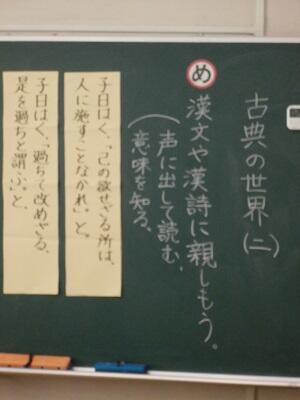 古典の世界(二)
め
漢文や漢詩に親しもう。
(声に出して読む、
意味を知る、
子曰はく、「己の欲せざる所は、
人に施すことなかれ。」と。
子曰はく、「過ちて改めざる、
是を過ちと謂ふ。」と、